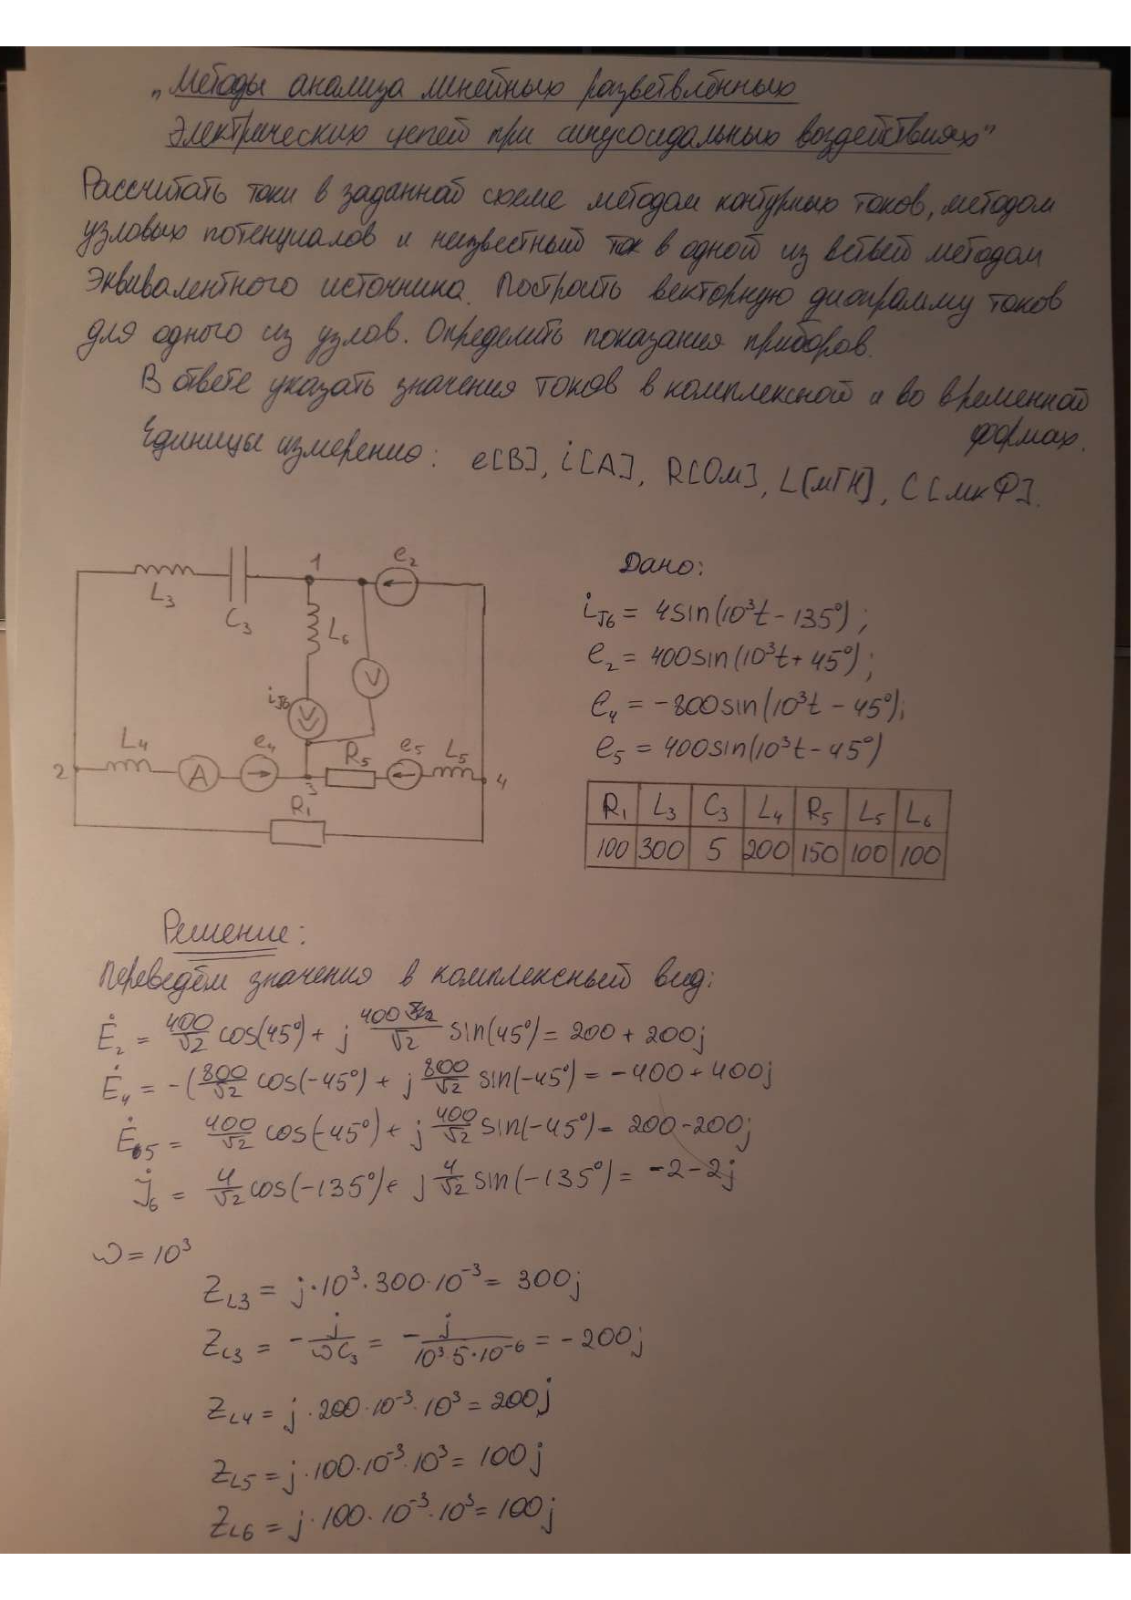 „Методы анализа линейных разветвлённых
электрических цепей при синусоидальных воздействиях"
Рассчитать токи в заданной схеме методом контурных токов, методом
узловых потенциалов и неизвестный ток в одной из ветвей методом
эквивалентного источника. Построить векторную диаграмму токов
для одного из узлов. Определить показания приборов.
В ответе указать значения токов в комплексной и во временной
формах.
Единицы измерения: e[В], i[А], R[Ом], L[мГн], C[мкФ].
1
e₂
L₃
C₃
L₆
V
i_J6
L₄
A
e₄
3
R₅
e₅
L₅
2
4
R₁
Дано:
i_J6 = 4sin(10³t - 135°);
e₂ = 400sin(10³t + 45°);
e₄ = -800sin(10³t - 45°);
e₅ = 400sin(10³t - 45°)
R₁ L₃ C₃ L₄ R₅ L₅ L₆
100 300 5 200 150 100 100
Решение:
Переведём значения в комплексный вид:
Ė₂ = 400/√2 cos(45°) + j 400/√2 sin(45°) = 200 + 200j
Ė₄ = -(800/√2 cos(-45°) + j 800/√2 sin(-45°) = -400 + 400j
Ė₅ = 400/√2 cos(-45°) + j 400/√2 sin(-45°) = 200 - 200j
J̇₆ = 4/√2 cos(-135°) + j 4/√2 sin(-135°) = -2 - 2j
ω = 10³
Z_L3 = j·10³·300·10⁻³ = 300j
Z_C3 = -j/ωC₃ = -j/10³5·10⁻⁶ = -200j
Z_L4 = j·200·10⁻³·10³ = 200j
Z_L5 = j·100·10⁻³·10³ = 100j
Z_L6 = j·100·10⁻³·10³ = 100j